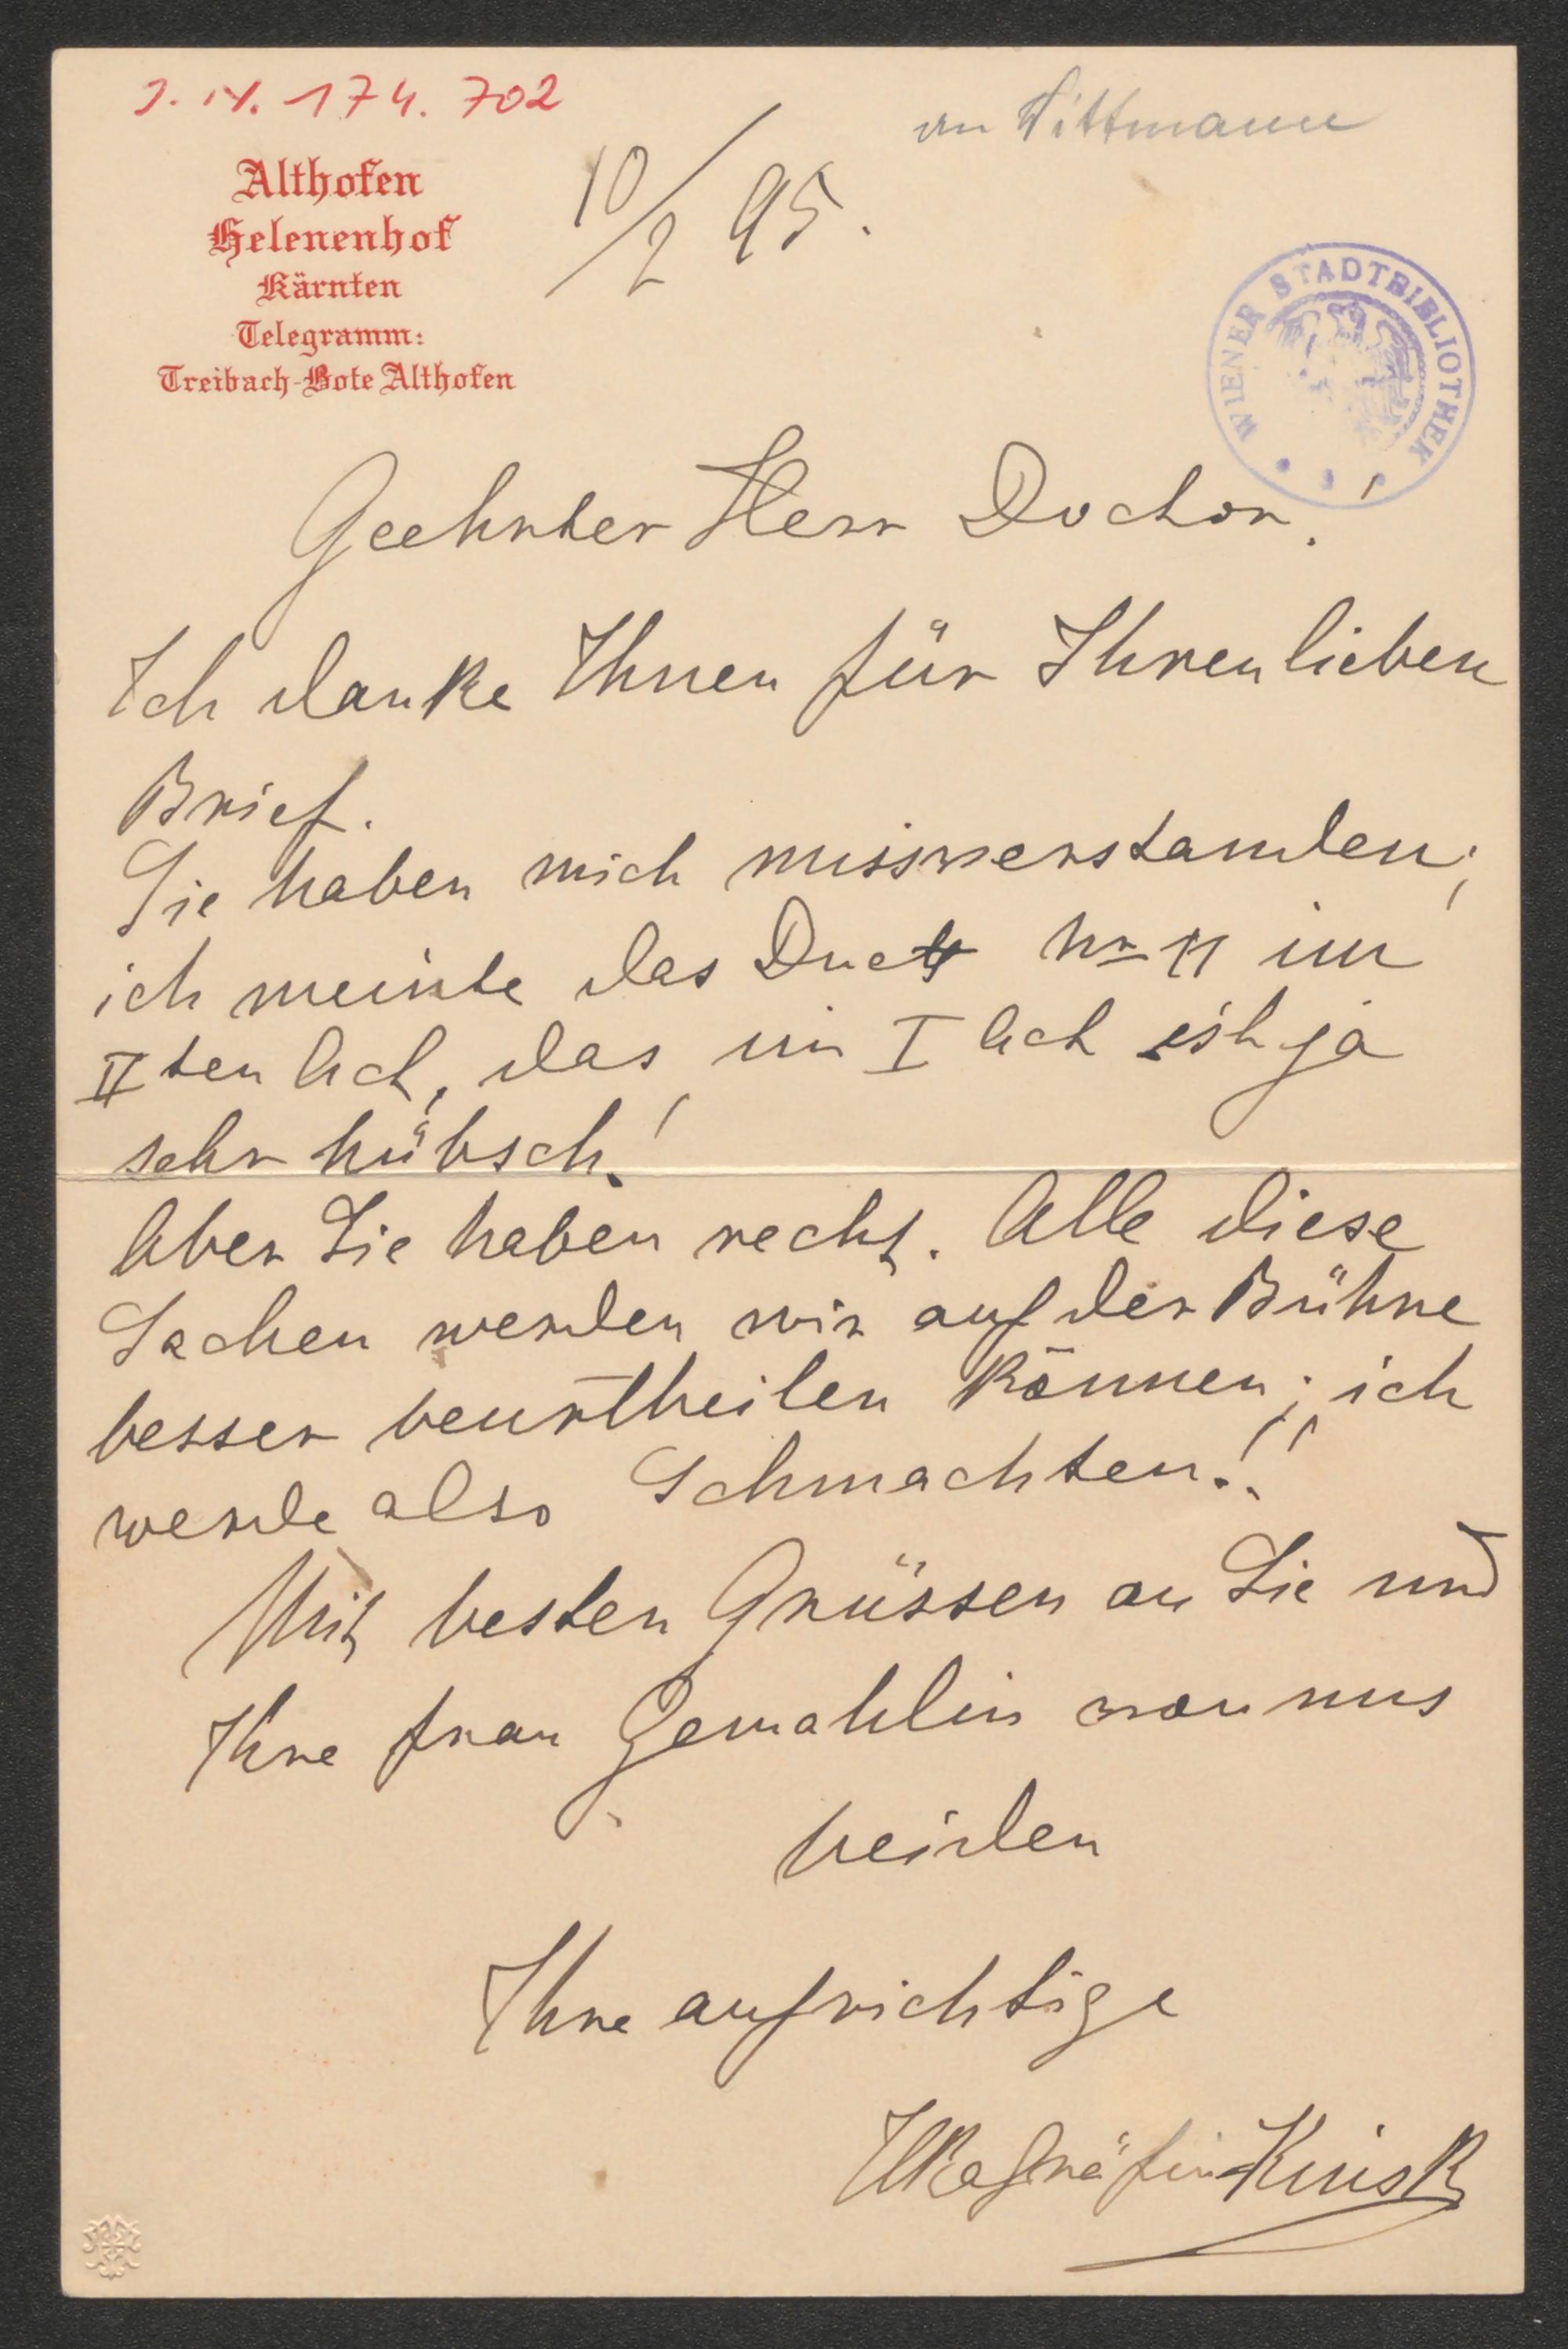 J. N. 174.702
an Wittmann
Althofen
Helenenhof
Kärnten
Telegramm:
Treibach-Bote Althofen
10/2 95.
WIENER STADTBIBLIOTHEK
Geehrter Herr Doctor!
Ich danke Ihnen für Ihren lieben
Brief.
Sie haben mich missverstanden;
ich meinte das Duett Nr 11 im
IIten Act, das im I Act ist ja
sehr hübsch!
Aber Sie haben recht. Alle diese
Sachen werden wir auf der Bühne
besser beurtheilen können; ich
werde also Schmachten!!
Mit besten Grüssen an Sie und
Ihre Frau Gemahlin von uns
beiden
Ihre aufrichtige
Ilka Gräfin Kinsky